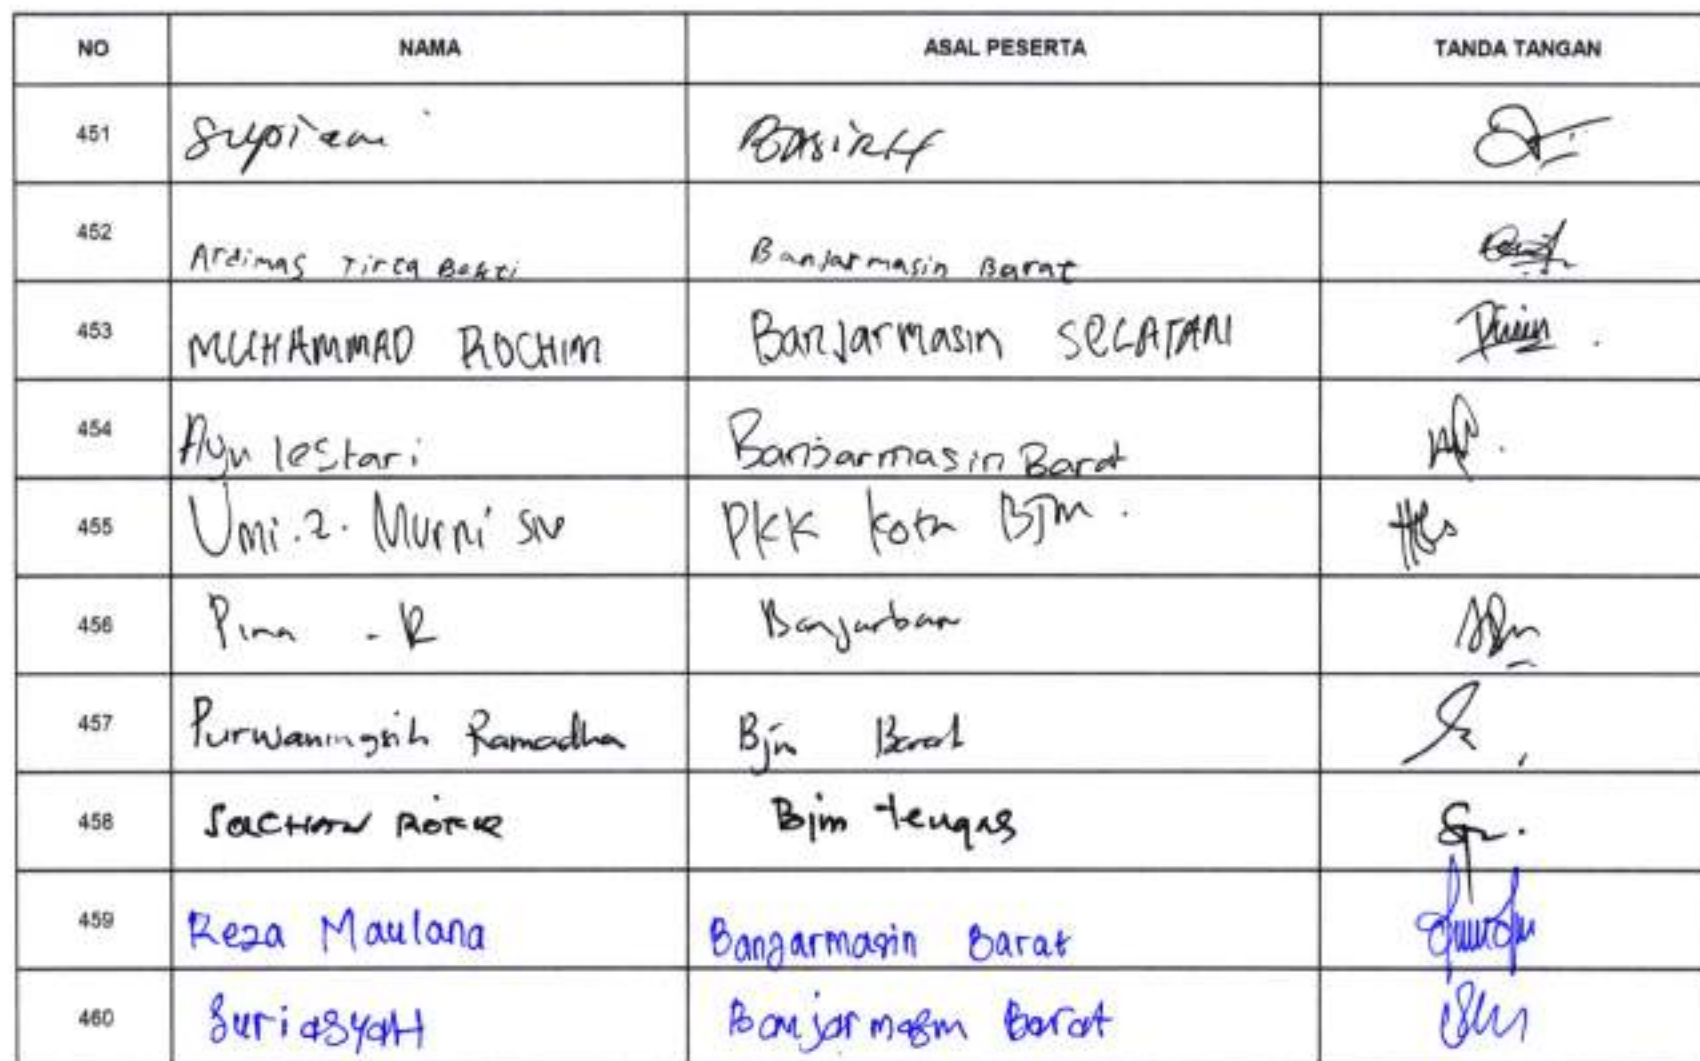 NO NAMA ASAL PESERTA TANDA TANGAN
451 Supiani BASIRIH
452 Ardimas Tirta Bakti Banjarmasin Barat
453 MUHAMMAD ROCHIM Banjarmasin SELATAN
454 Ayu lestari Banjarmasin Barat
455 Umi.z. Murni PKK Kota BJM.
456 - R Banjarbaru
457 Purwaningsih Ramadha Bjm Barat
458 Bjm tengah
459 Reza Maulana Banjarmasin Barat
460 SuriasyaH Banjarmasin Barat